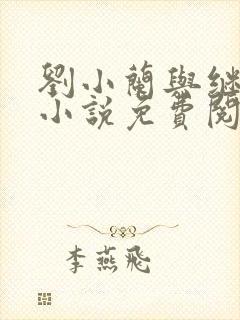 劉小蘭與继
小说免費閱
李燕飛